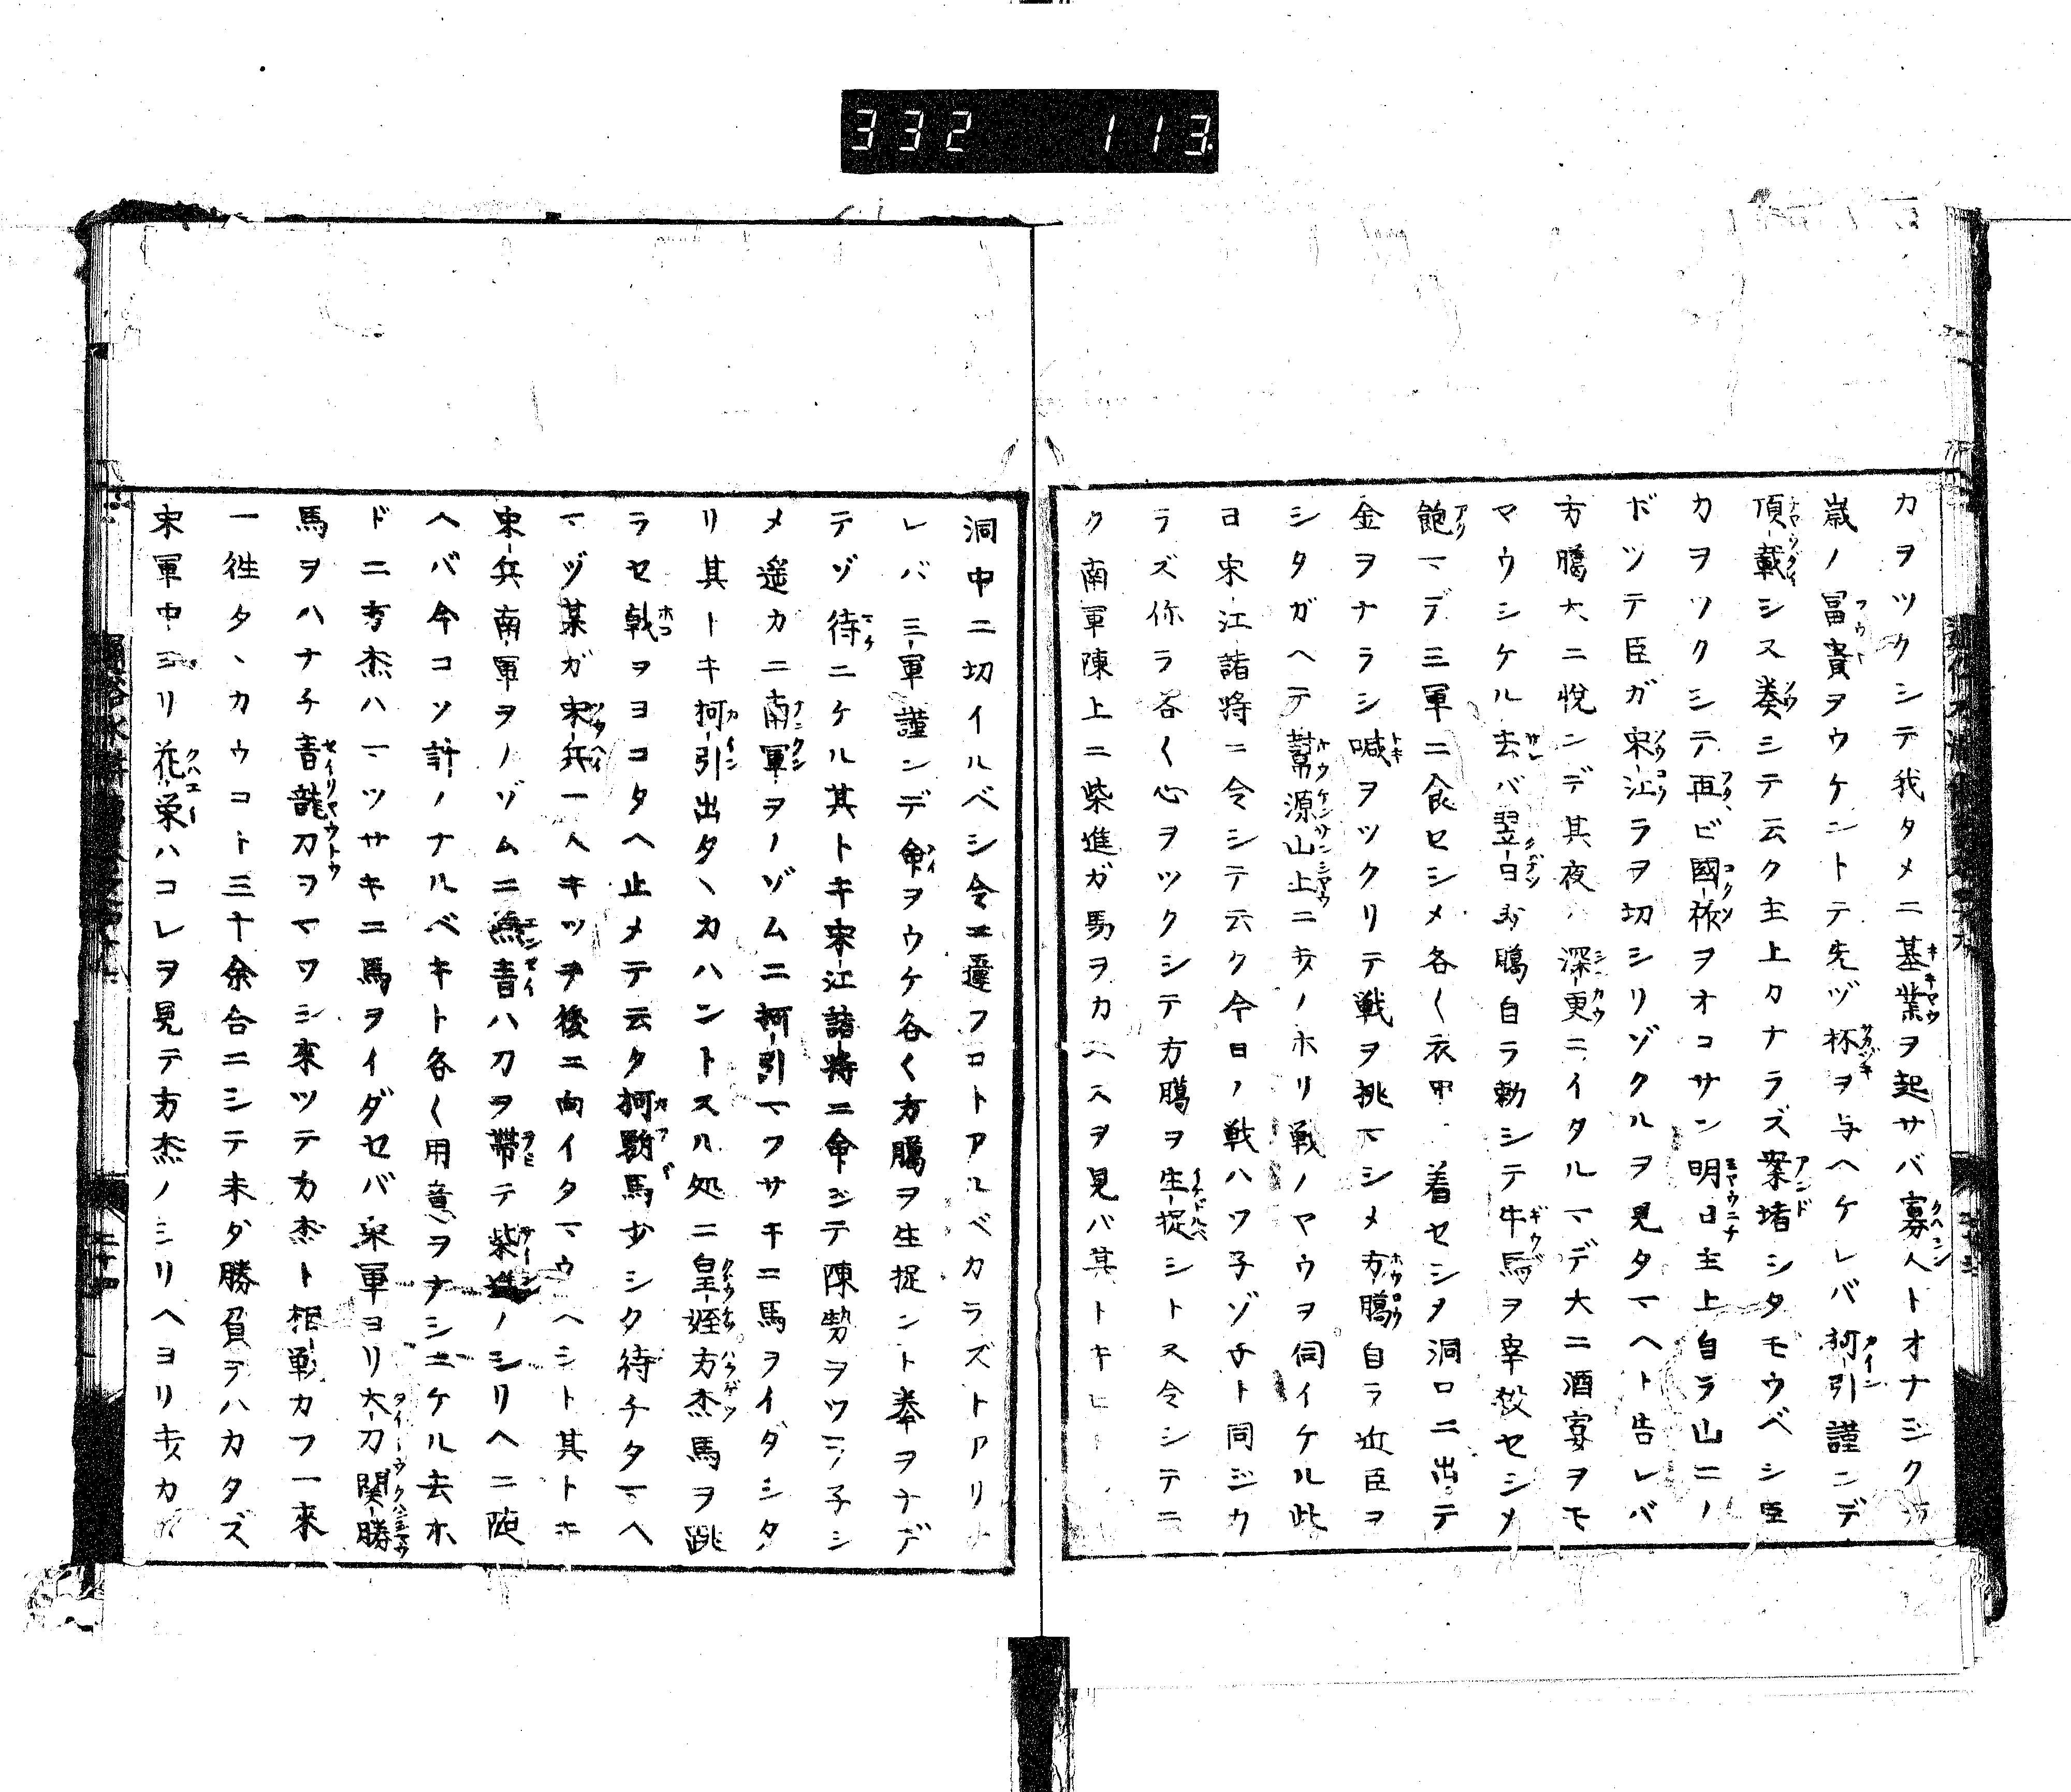 332 113
カヲツクシテ我タメニ基業ヲ起サバ寡人トオナジク万
歳ノ冨貴ヲウケントテ先ヅ杯ヲ与ヘケレバ柯引謹ンデ
頂戴シス奏シテ云ク主上カナラズ案堵シタモウベシ臣
カヲツクシテ再ビ國祚ヲオコサン明日主上自ラ山ニノ
ボツテ臣ガ宋江ラヲ切シリゾクルヲ見タマヘト告レバ
方臈大ニ悦ンデ其夜ハ深更ニイタルマデ大ニ酒宴ヲモ
マウシケル去バ翌日方臈自ラ勅シテ牛馬ヲ宰殺セシメ
飽マデ三軍ニ食セシメ各〱衣甲ヲ着セシメ洞口ニ出テ
金ヲナラシ喊ヲツクリテ戦ヲ挑マシメ方臈自ラ近臣ヲ
シタガヘテ幇源山上ニキノホリ戦ノヤウヲ伺イケル此
日宋江諸将ニ令シテ云ク今日ノ戦ハツ子ゾ子ト同ジカ
ラズ你ラ各〱心ヲツクシテ方臈ヲ生捉シトス令シテニ
ク南軍陳上ニ柴進ガ馬ヲカヘスヲ見バ其トキ
洞中ニ切イルベシ令ニ違フコトアルベカラズトアリ
レバ三軍謹ンデ命ヲウケ各〱方臈ヲ生捉ント拳ヲナデ
テゾ待ニケル其トキ宋江諸將ニ命ジテ陳勢ヲツラ子シ
メ遥カニ南軍ヲノゾムニ柯引マツサキニ馬ヲイダシタ
リ其トキ柯引出タヽカハントスル処ニ皇姪方杰馬ヲ跳
ラセ戟ヲヨコタヘ止メテ云ク柯駙馬少シク待チタマヘ
マヅ某ガ宋兵一人キツテ後ニ向イタマウヘシト其トキ
宋兵南軍ヲノゾムニ燕青ハ刀ヲ帯テ柴進ノシリヘニ随
ヘバ今コソ計ノナルベキト各〱用意ヲナシニケル去ホ
ドニ方杰ハマツサキニ馬ヲイダセバ宋軍ヨリ大刀関勝
馬ヲハナチ青龍刀ヲマワシ來ツテ方杰ト相戦カフ一來
一徃タヽカウコト三十余合ニシテ未ダ勝負ヲハカタズ
宋軍中ヨリ花栄ハコレヲ見テ方杰ノシリヘヨリ